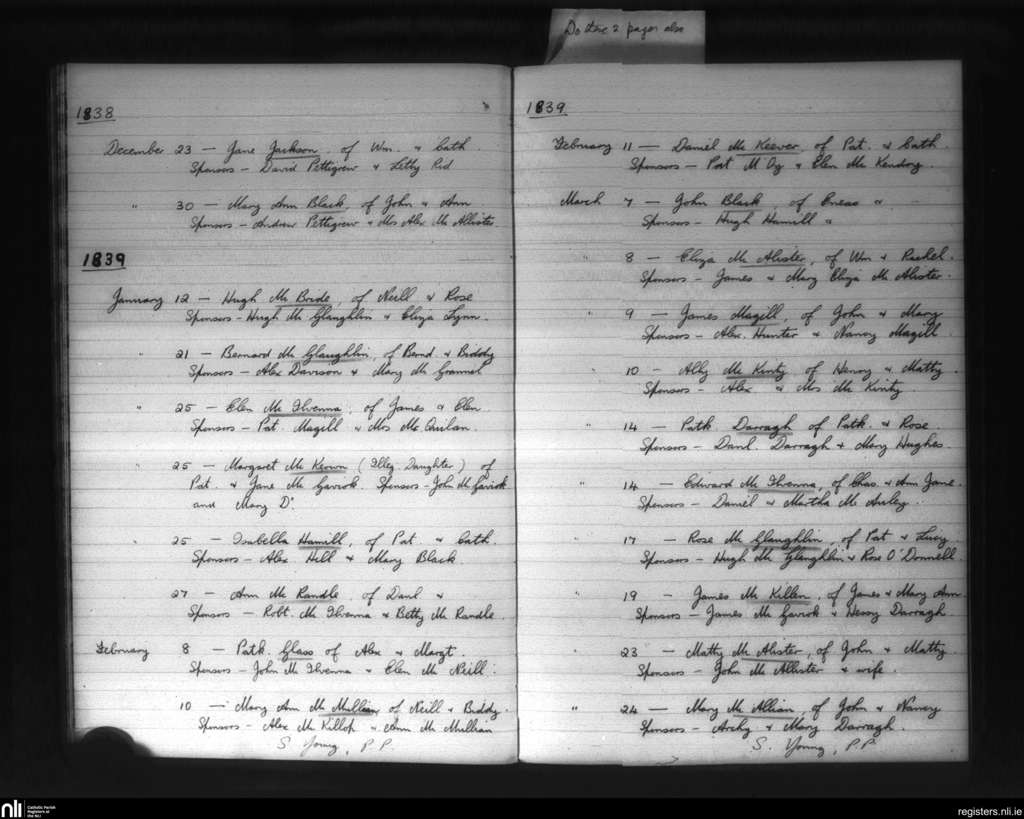 Do these 2 pages also
1838
December 23 — Jane Jackson, of Wm. & Cath.
Sponsors — David Pettigrew & Letty Rid
" 30 — Mary Ann Black, of John & Ann
Sponsors — Andrew Pettigrew & Mrs Alex Mc Allister
1839
January 12 — Hugh Mc Bride, of Neill & Rose
Sponsors — Hugh Mc Glaughlin & Eliza Lynn.
" 21 — Bernard Mc Glaughlin, of Bernd. & Biddy
Sponsors — Alex Davison & Mary Mc
" 25 — Elen Mc Ilvenna, of James & Elen
Sponsors — Pat. Magill & Mrs Mc Quilan.
25 — Margaret Mc Keown (Illeg. Daughter) of
Pat. & Jane Mc Gavrok. Sponsors — John Mc Gavrok
and Mary Do.
" 25 — Isabella Hamill, of Pat. & Cath.
Sponsors — Alex Hill & Mary Black.
" 27 — Ann Mc Randle, of Danl &
Sponsors — Robt. Mc Ilvenna & Betty Mc Randle.
February 8 — Patk. Glass of Alex & Margt.
Sponsors — John Mc Ilvenna & Elen Mc Neill.
10 — Mary Ann Mc Mullian of Neill & Biddy.
Sponsors — Alex Mc Killop & Ann Mc Mullian
S. Young, P.P.
1839
February 11 — Daniel Mc Keever, of Pat. & Cath.
Sponsors — Pat M & Elen Mc Kendry.
March 7 — John Black, of Eneas "
Sponsors — Hugh Hamill "
" 8 — Eliza Mc Alister, of Wm & Rachel.
Sponsors — James & Mary Eliza Mc Alister.
" 9 — James Magill, of John & Mary
Sponsors — Alex. Hunter & Nancy Magill.
" 10 — Ally Mc Kinty of Henry & Matty.
Sponsors — Alex & Mrs Mc Kinty.
" 14 — Patk Darragh of Patk. & Rose.
Sponsors — Danl. Darragh & Mary Hughes.
" 14 — Edward Mc Ilvenna, of Chas. & Ann Jane.
Sponsors — Daniel & Martha Mc Auley.
" 17 — Rose Mc Glaughlin, of Pat & Lucy.
Sponsors — Hugh Mc Glaughlin & Rose O'Donnell.
" 19 — James Mc Killen, of James & Mary Ann.
Sponsors — James Mc Gavrok & Hessy Darragh.
" 23 — Matty Mc Alister, of John & Matty.
Sponsors — John Mc Allister & wife.
" 24 — Mary Mc Allian, of John & Nancy
Sponsors — Archy & Mary Darragh.
S. Young, P.P.
nli Catholic Parish Registers at the NLI
registers.nli.ie